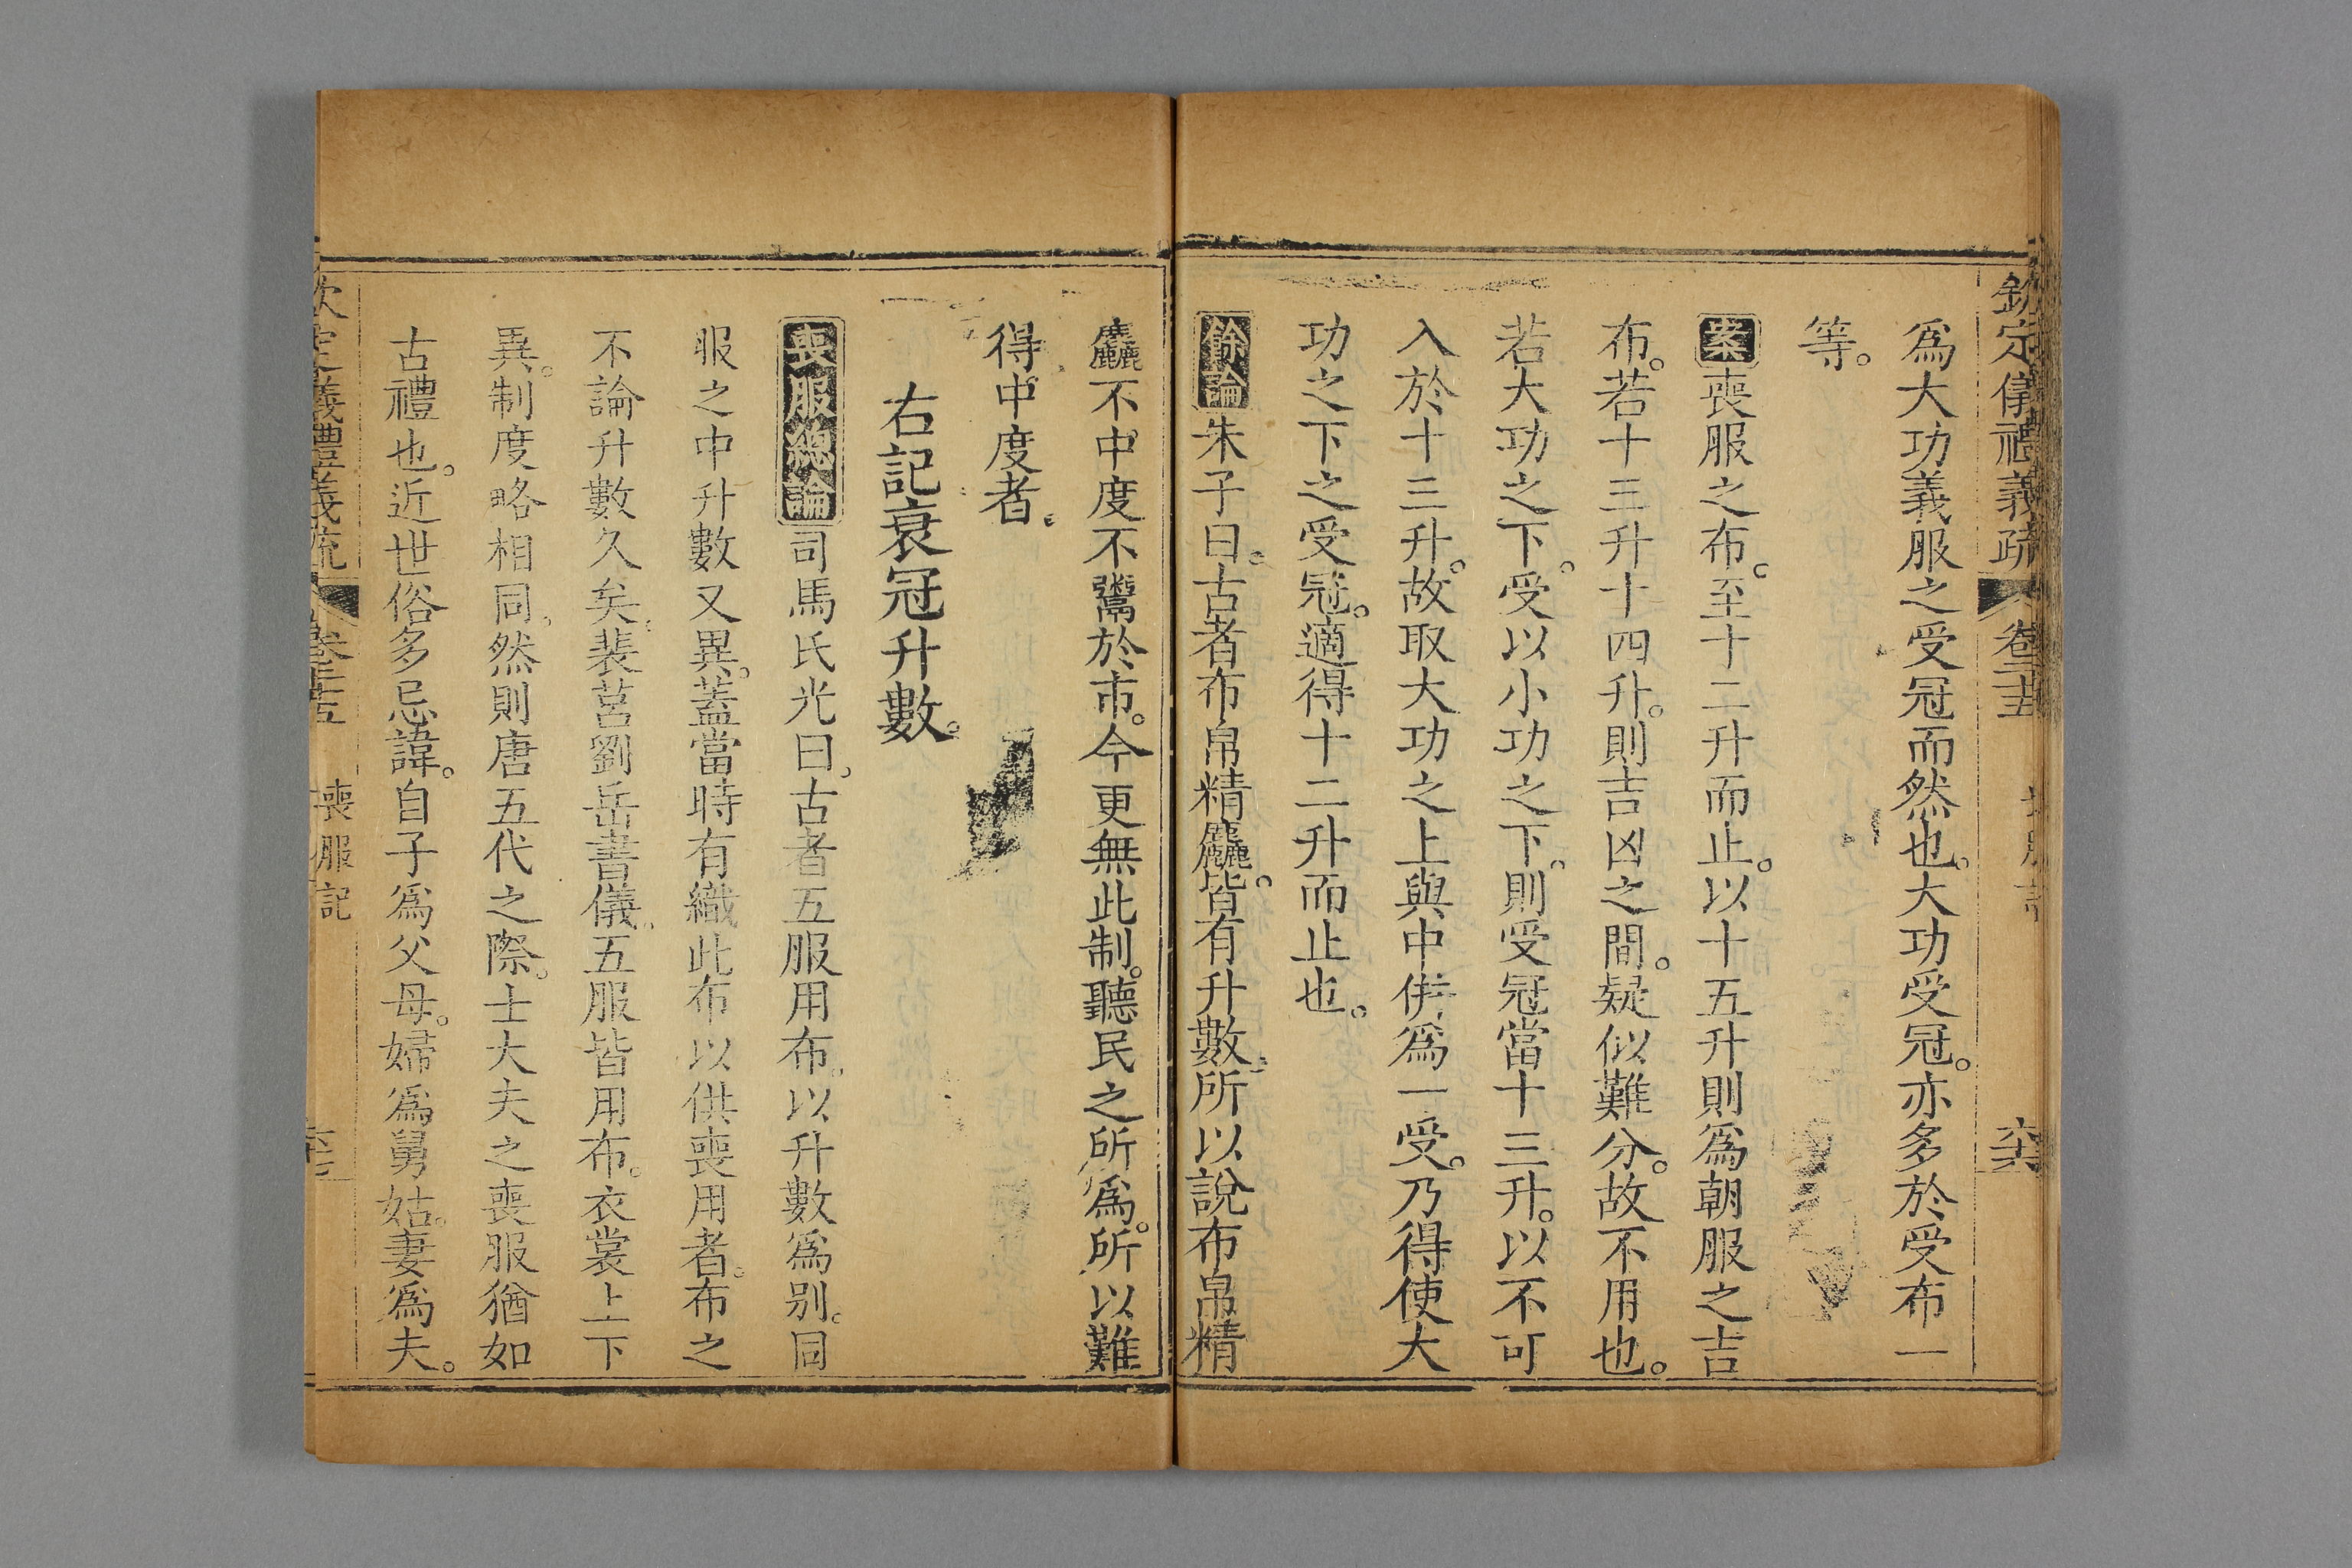 欽定儀禮義疏 卷二十五 喪服記
爲大功義服之受冠而然也。大功受冠。亦多於受布一
等。
案喪服之布。至十二升而止。以十五升則爲朝服之吉
布。若十三升十四升。則吉凶之間。疑似難分。故不用也。
若大功之下。受以小功之下。則受冠當十三升。以不可
入於十三升。故取大功之上與中倂爲一受。乃得使大
功之下之受冠。適得十二升而止也。
餘論朱子曰。古者布帛精麤。皆有升數。所以說布帛精
麤不中度不鬻於市。今更無此制。聽民之所爲。所以難
得中度者。
右記衰冠升數。
喪服總論司馬氏光曰。古者五服用布。以升數爲别。同
服之中升數又異。蓋當時有織此布以供喪用者。布之
不論升數久矣。裴莒劉岳書儀。五服皆用布。衣裳上下
異。制度略相同。然則唐五代之際。士大夫之喪服猶如
古禮也。近世俗多忌諱。自子爲父母。婦爲舅姑。妻爲夫。
欽定儀禮義疏 卷二十五 喪服記